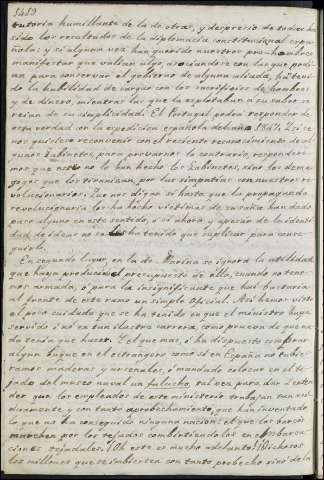 tutoria humillante de la de otras, y desprecio de todas han
sido los resultados de la diplomacia constitucional espa-
ñola: y si alguna vez han querido nuestros pro-hombres
manifestar que valian algo, asociándose con las que podi-
an para conservar el gobierno de alguna aliada, ha teni-
do la habilidad de cargar con los sacrificios de hombres
y de dinero, mientras las que la esplotaban a su sabor se
reian de su simplicidad: El Portugal podrá responder de
esta verdad con la expedicion española de l año 1847. I si se
nos quisiese reconvenir con el reciente reconocimiento de al-
gunos Gabinetes, para provarnos lo contrario, responder-
emos que esto no lo han hecho los Gabinetes, sino los dema-
gogos que los tiranizan, por las simpatías con nuestros re-
volucionarios. Que nos digan si hasta que la propaganda
revolucionaria los ha hecho victimas de su saña han dado
paso alguno en este sentido, y si ahora y apesar de la identi-
dad de ideas no les ha tenido que suplicar para conse-
guirlo.
En segundo lugar, en la de Marina se ignora la utilidad
que haya producido el presupuesto de ella, cuando no tene-
mos armada, ó para la insignificante que hai bastaria
al frente de este ramo un simple oficial. Asi hemos visto
el poco cuidado que se ha tenido en que el ministro haya
servido ó no en tan ilustre carrera, como prueva de que na-
da tenia que hacer. Y el que mas, ó ha dispuesto comprar
algun buque en el estrangero como si en España no tubié-
ramos maderas y arsenales, ó mandado colocar en el te-
jado del museo naval un falucho, tal vez para dar á enten-
der que los empleados de este ministerio trabajan tan asi-
duamente y con tanto aprovechamiento, que han inventado
lo que no ha conseguido ninguna nacion: el que los barcos
marchen por los tejados combirtiendolos en embarca-
ciones tejadiles. ¡Oh este es mucho adelanto! ¡Dichosos
los millones que se imbierten con tanto probecho sino de la